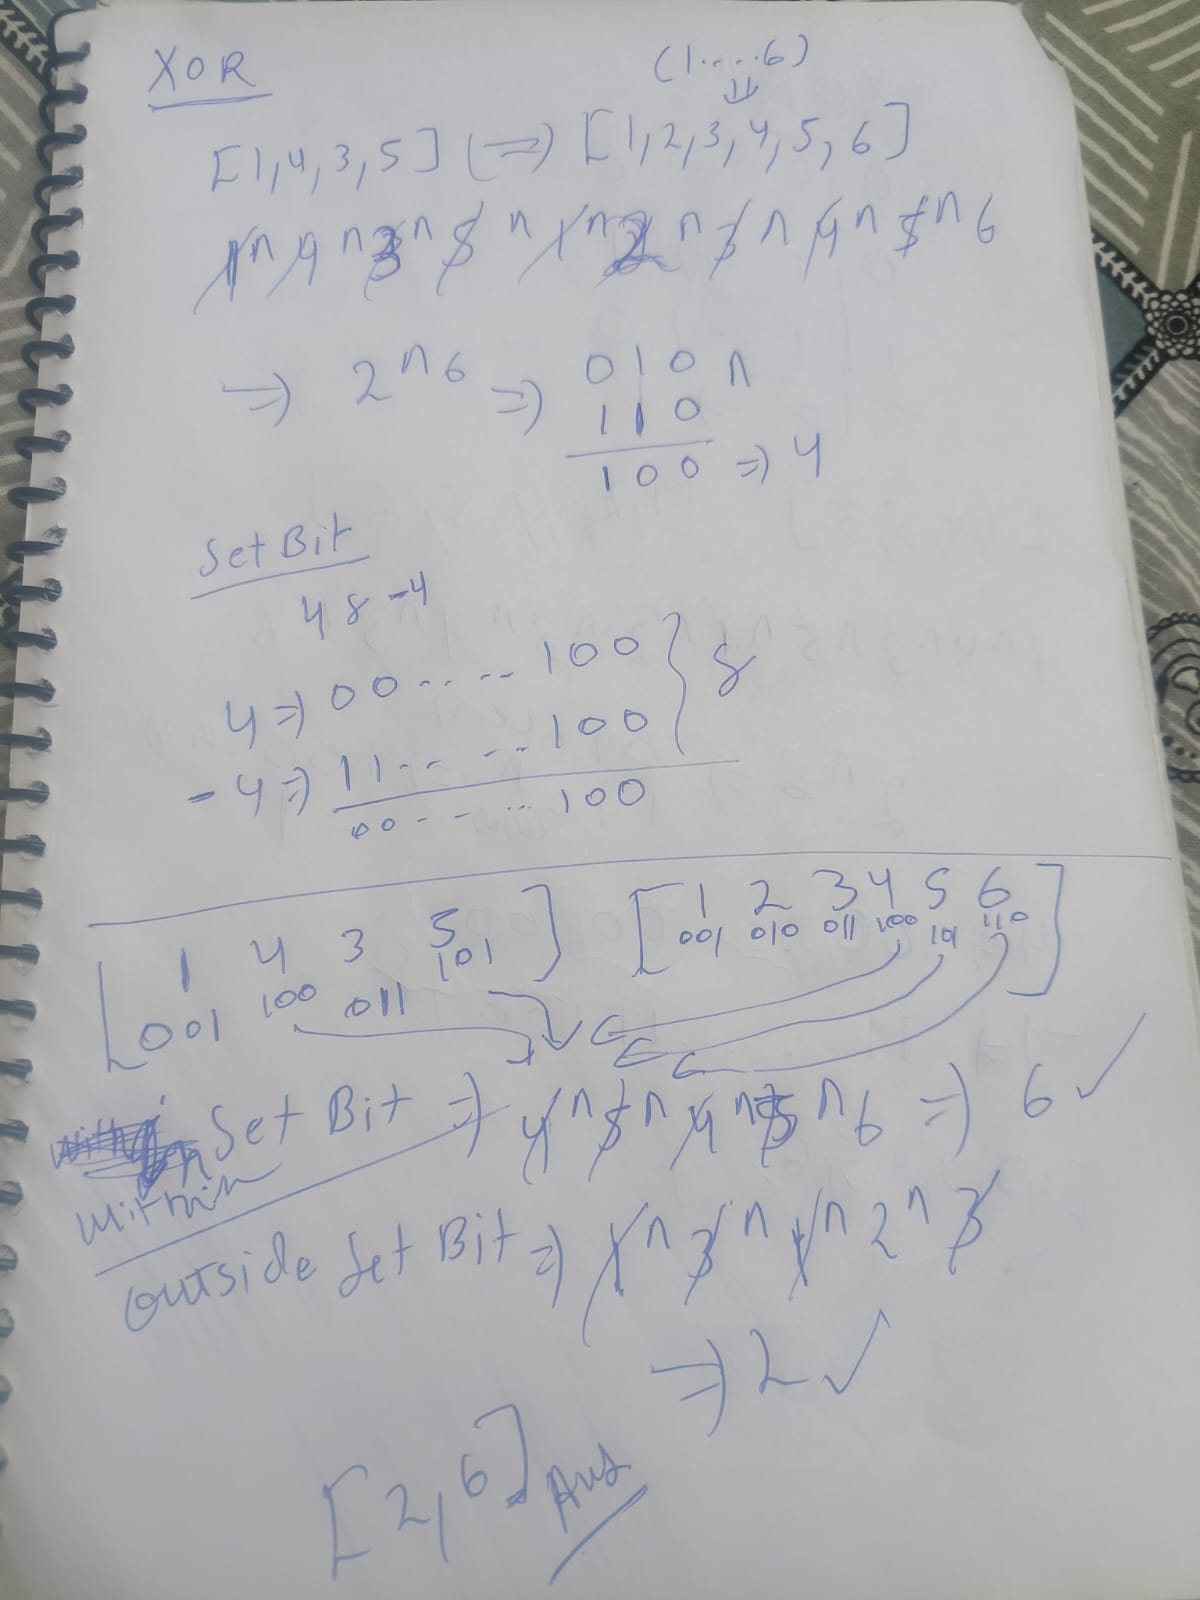 XOR
(1....6)
[1,4,3,5] (=>) [1,2,3,4,5,6]
1^4^3^5^1^2^3^4^5^6
=> 2^6 => 010 ^
110
100 => 4
Set Bit
4 & -4
4 => 00.... 100 } &
-4 => 11.. ... 100
00.... 100
[1 4 3 5] [1 2 3 4 5 6]
001 100 011 101 001 010 011 100 101 110
within Set Bit => 4^5^4^5^6 => 6 ✓
Outside Set Bit => 1^3^1^2^3
=> 2 ✓
[2,6] Ans